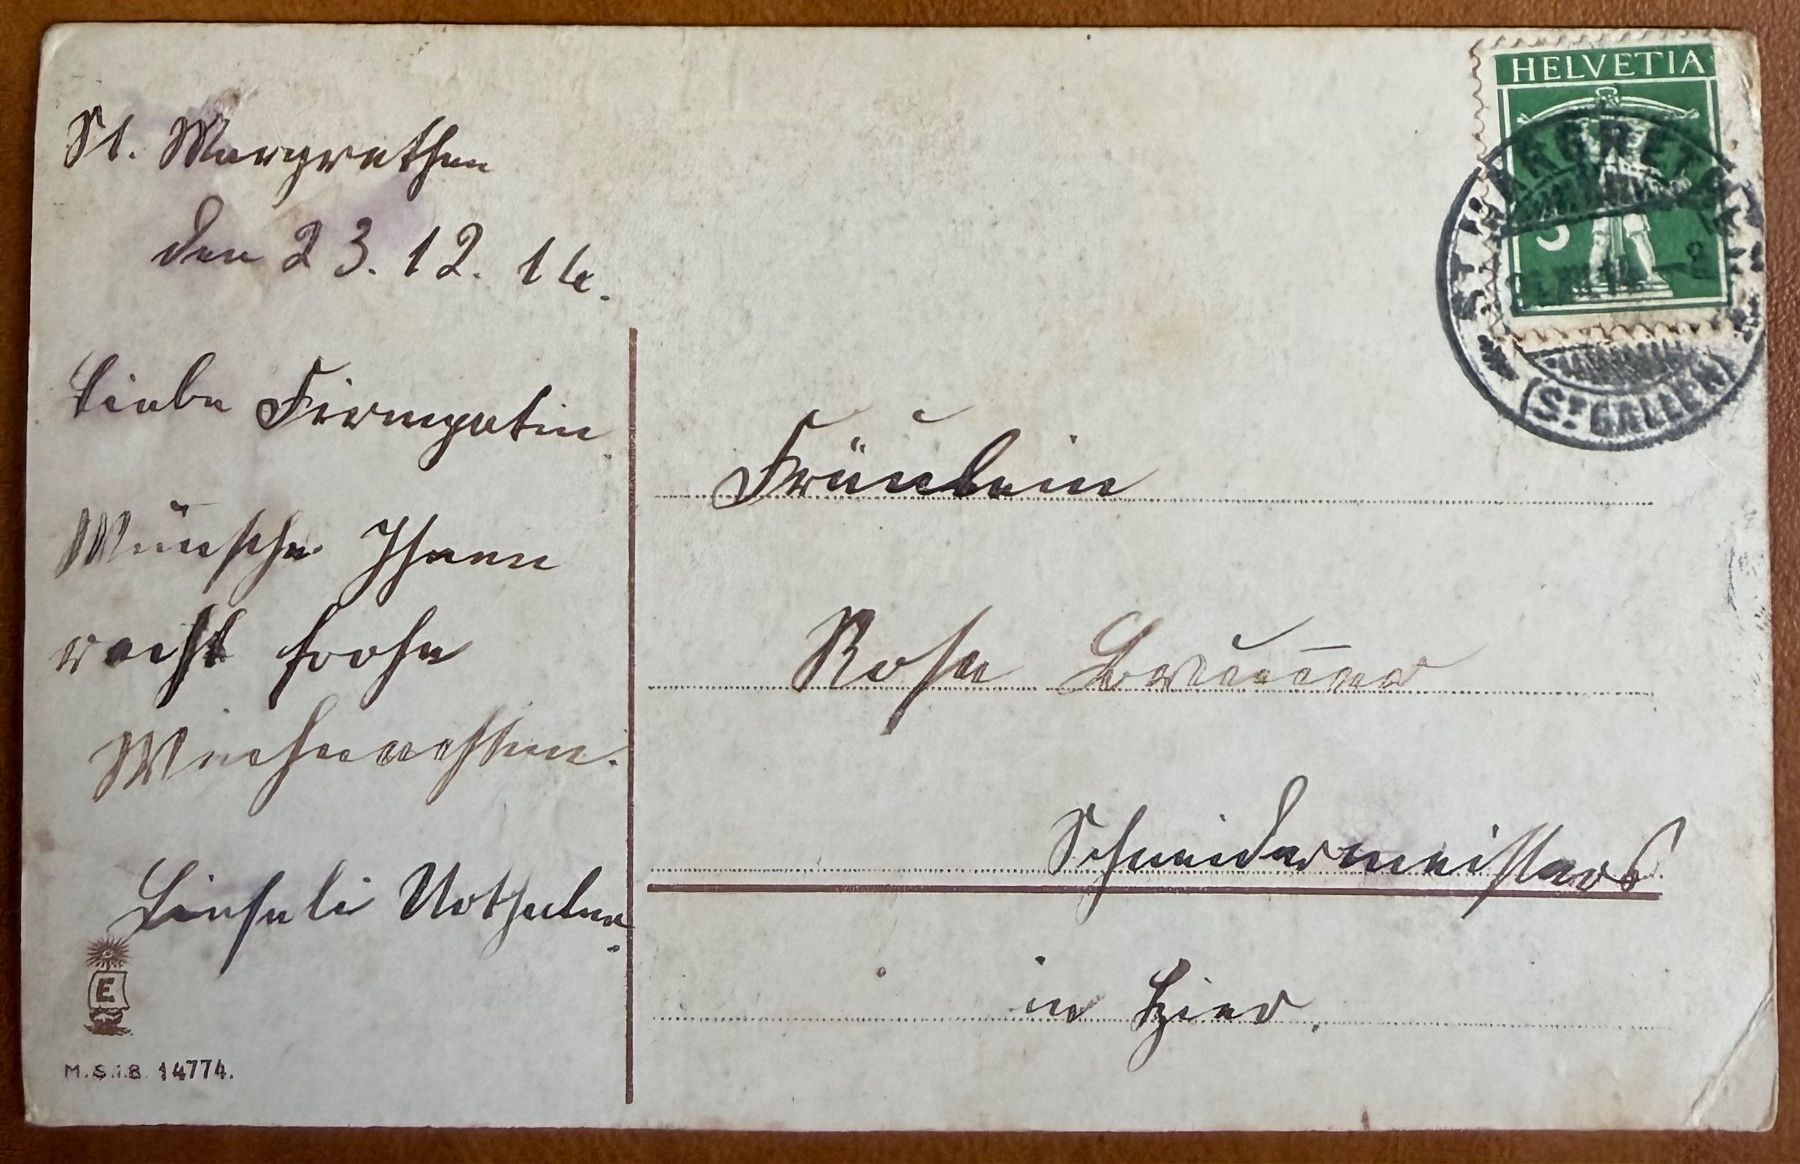 St. Margrethen
den 23. 12. 14.
Liebe Firmpatin
Wünsche Ihnen
recht frohe
Weihnachten.
E.
M.S.i.B. 14774.
HELVETIA
5
ST. MARGRETHEN
(ST GALLEN)
Fräulein
Rosa
Schneidermeisters
in hier.